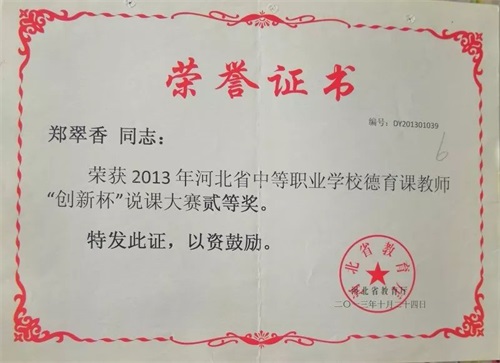 荣誉证书
编号：DY201301039
6
郑翠香 同志：
荣获 2013 年河北省中等职业学校德育课教师
“创新杯”说课大赛贰等奖。
特发此证，以资鼓励。
河北省教育厅
河北省教育厅
二〇一三年十月二十四日